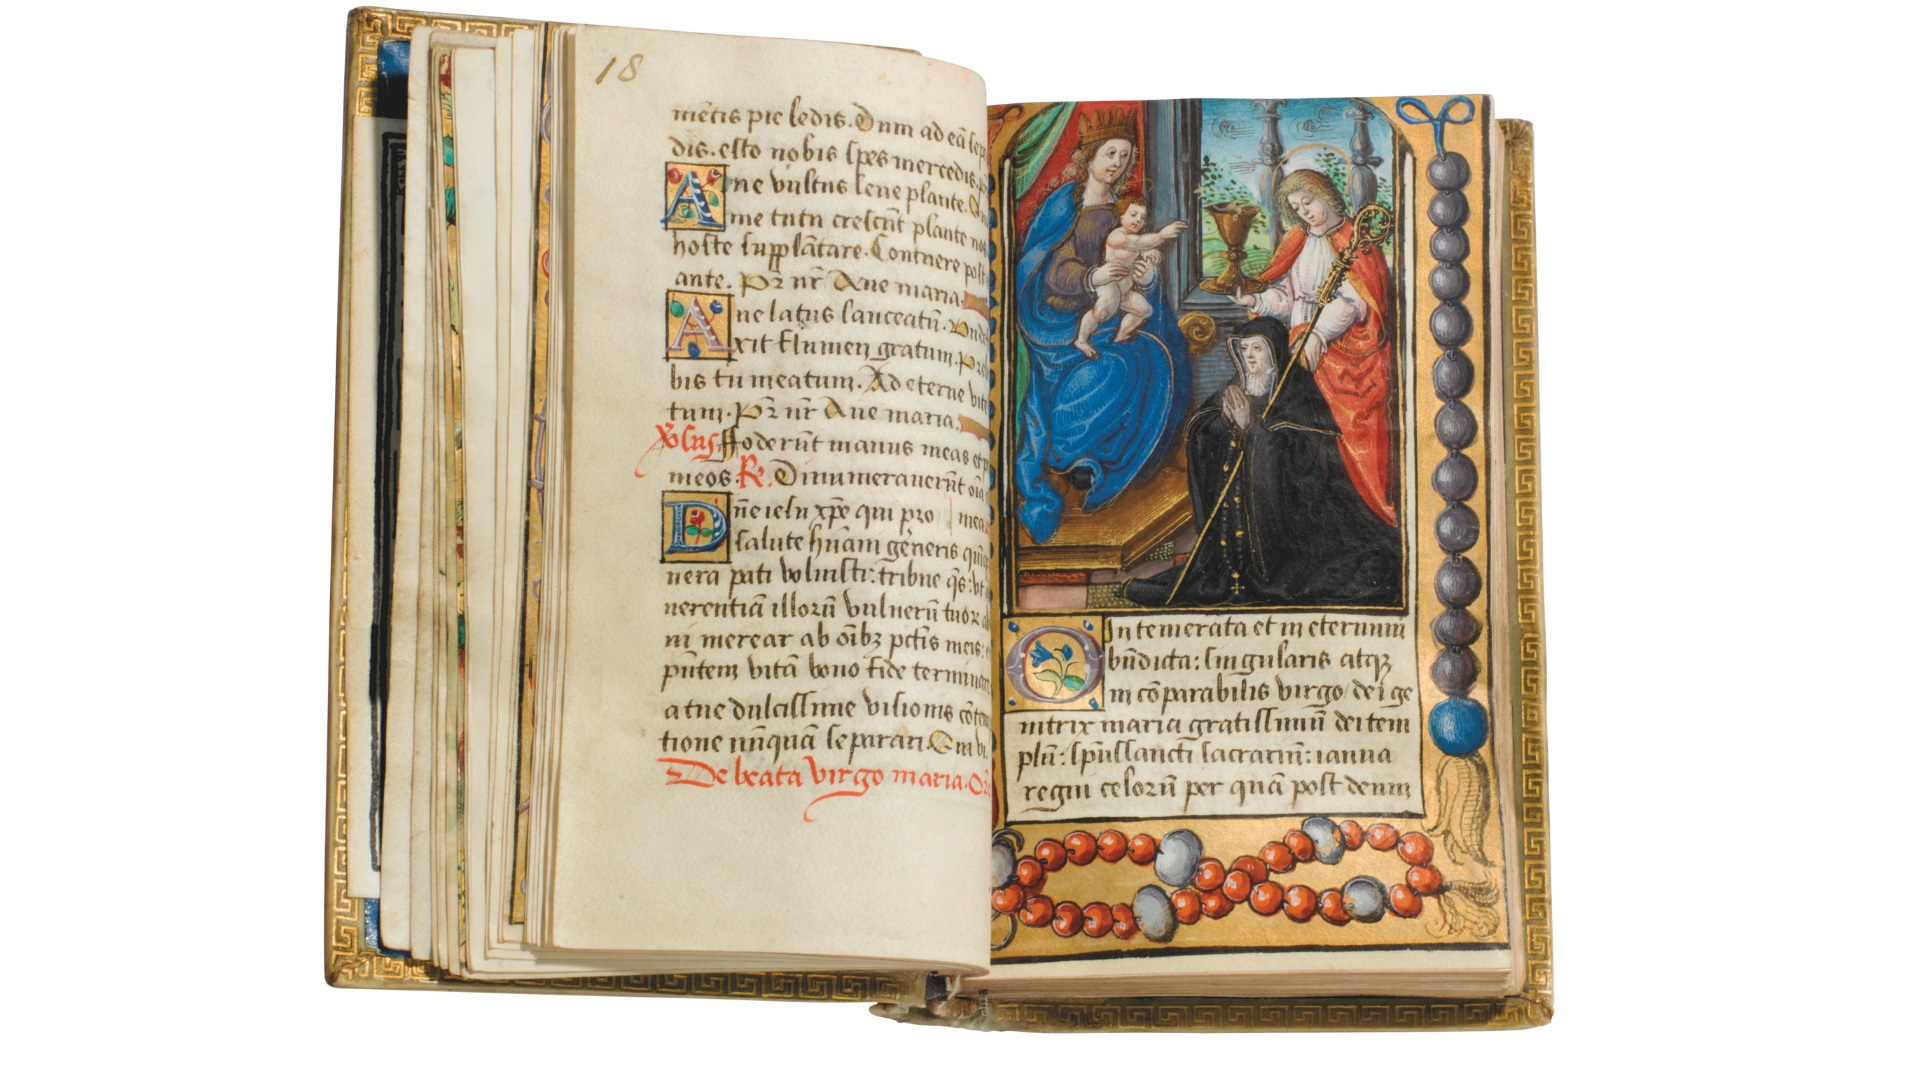 18
mẽtis pie ledis. Dum ad eã
dis. esto nobis spes mercedis.
Ane vultus leue plante.
me tutu crescũt plante
hoste supplãtare. Conterere post
ante. Pr nr Aue maria.
Aue latus lanceatũ.
xit flumen gratum.
bis tu meatum. Ad eterne
tum. Pr nr Aue maria.
Foderũt manus meas et
meos. R. Dinumerauerũt
Dñe iesu xpe qui pro mea
salute hũani generis
nera pati voluisti: tribue qs: vt
uerentiã illorũ vulnerũ tuor
ni merear ab oĩbz pctis meis:
pñtem vitã bono fide
atue dulcissime visionis
tione nũquã separari. Qui vi
De beata virgo maria.
O Intemerata et in eternum
bñdicta: singularis atqz
in cõparabilis virgo dei ge
nitrix maria gratissimũ dei tem
plũ: spũssancti sacrariũ: ianua
regni celorũ per quã post deum